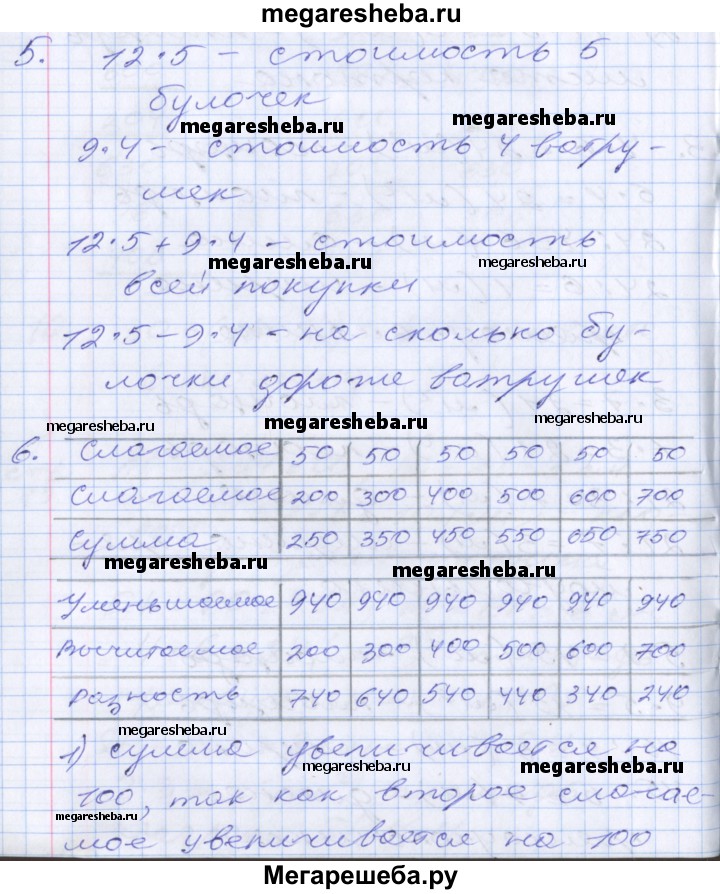 megaresheba.ru
5. 12·5 – стоимость 5
булочек
megaresheba.ru megaresheba.ru
9·4 – стоимость 4 ватру-
шек
12·5+9·4 – стоимость
megaresheba.ru megaresheba.ru
всей покупки
12·5–9·4 – на сколько бу-
лочки дороже ватрушек
megaresheba.ru megaresheba.ru megaresheba.ru
6. Слагаемое 50 50 50 50 50 50
Слагаемое 200 300 400 500 600 700
Сумма 250 350 450 550 650 750
megaresheba.ru megaresheba.ru
Уменьшаемое 940 940 940 940 940 940
Вычитаемое 200 300 400 500 600 700
Разность 740 640 540 440 340 240
megaresheba.ru
1) сумма увеличивается на
megaresheba.ru megaresheba.ru
100, так как второе слагае-
megaresheba.ru
мое увеличивается на 100
Мегарешеба.ру